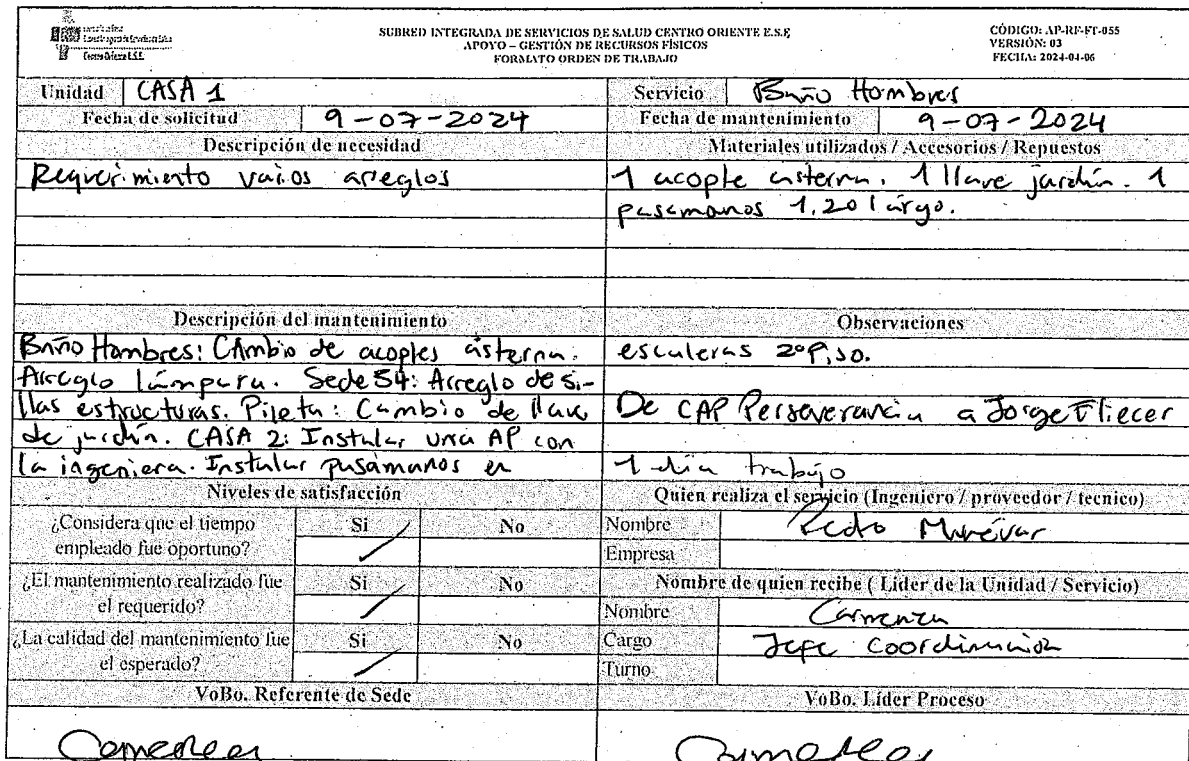 SUBRED INTEGRADA DE SERVICIOS DE SALUD CENTRO ORIENTE E.S.E
APOYO – GESTIÓN DE RECURSOS FÍSICOS
FORMATO ORDEN DE TRABAJO
CÓDIGO: AP-RF-FT-055
VERSIÓN: 03
FECHA: 2024-04-06
Unidad CASA 1
Servicio Baño Hombres
Fecha de solicitud 9-07-2024
Fecha de mantenimiento 9-07-2024
Descripción de necesidad
Materiales utilizados / Accesorios / Repuestos
Requerimiento varios arreglos
1 acople cisterna. 1 llave jardín. 1
pasamanos 1.20 largo.
Descripción del mantenimiento
Baño Hombres: Cambio de acoples cisterna.
Arreglo lámpara. Sede 54: Arreglo de si-
llas estructuras. Pileta: Cambio de llave
de jardín. CASA 2: Instalar una AP con
la ingeniera. Instalar pasamanos en
Observaciones
escaleras 2º Piso.
De CAP Perseverancia a Jorge Eliecer
1 día trabajo
Niveles de satisfacción
¿Considera que el tiempo
empleado fue oportuno?
Si No
¿El mantenimiento realizado fue
el requerido?
Si No
¿La calidad del mantenimiento fue
el esperado?
Si No
Quien realiza el servicio (Ingeniero / proveedor / tecnico)
Nombre Pedro Munévar
Empresa
Nombre de quien recibe ( Líder de la Unidad / Servicio)
Nombre Carmenza
Cargo Jefe Coordinación
Turno
VoBo. Referente de Sede
VoBo. Líder Proceso